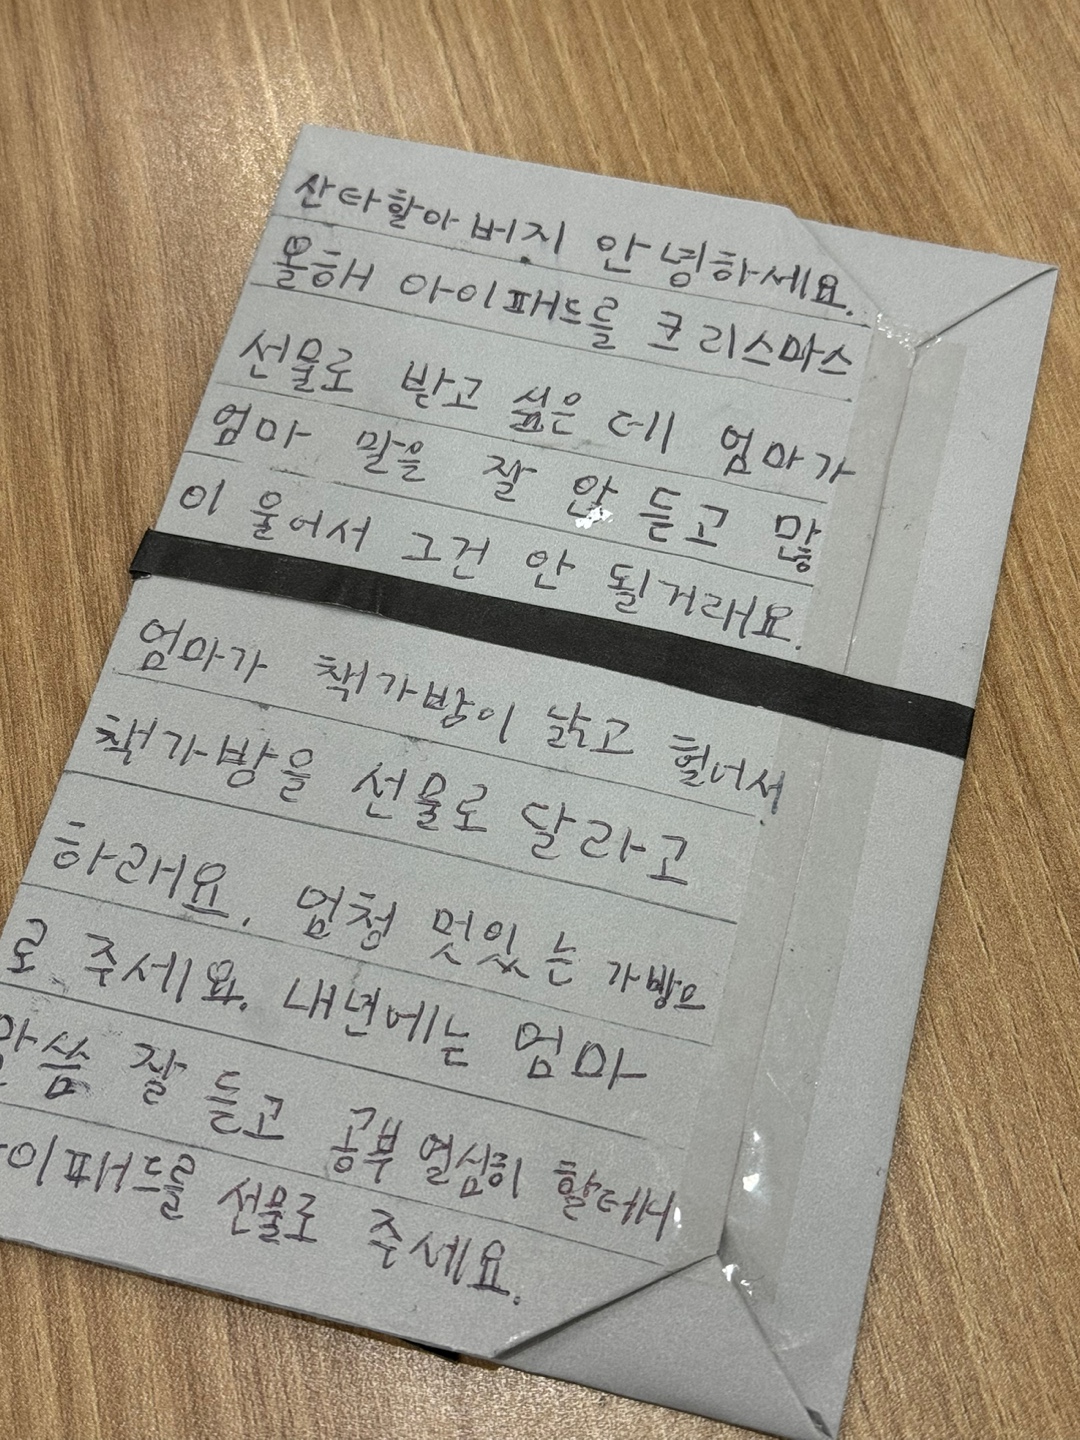 산타할아버지 안녕하세요.
올해 아이패드를 크리스마스
선물로 받고 싶은 데 엄마가
엄마 말을 잘 안 듣고 많
이 울어서 그건 안 될거래요.
엄마가 책가방이 낡고 헐어서
책가방을 선물로 달라고
하래요. 엄청 멋있는 가방으
로 주세요. 내년에는 엄마
말씀 잘 듣고 공부 열심히 할테니
아이패드를 선물로 주세요.